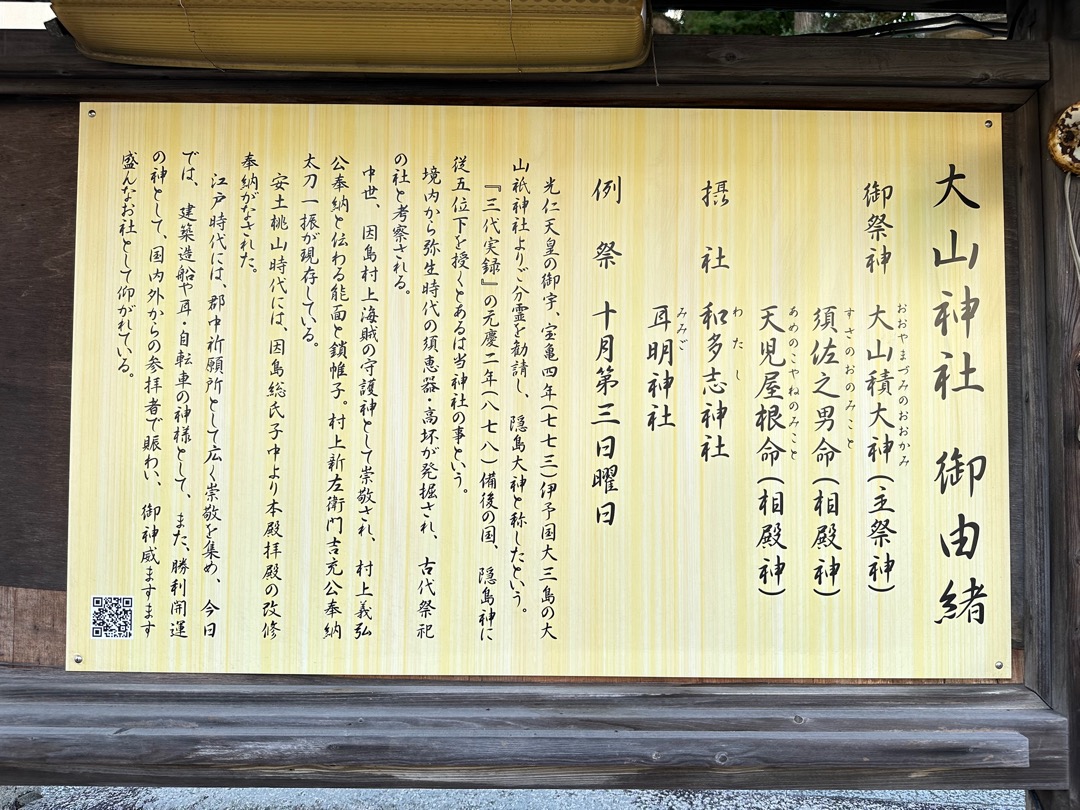 大山神社 御由緒
御祭神 大山積大神(主祭神)
おおやまづみのおおかみ
須佐之男命(相殿神)
すさのおのみこと
天児屋根命(相殿神)
あめのこやねのみこと
摂社 和多志神社
わたし
耳明神社
みみご
例祭 十月第三日曜日
光仁天皇の御宇、宝亀四年(七七三)伊予国大三島の大
山祇神社よりご分霊を勧請し、隠島大神と称したという。
『三代実録』の元慶二年(八七八)備後の国、隠島神に
従五位下を授くとあるは当神社の事という。
境内から弥生時代の須恵器・高坏が発掘され、古代祭祀
の社と考察される。
中世、因島村上海賊の守護神として崇敬され、村上義弘
公奉納と伝わる能面と鎖帷子。村上新左衛門吉充公奉納
太刀一振が現存している。
安土桃山時代には、因島総氏子中より本殿拝殿の改修
奉納がなされた。
江戸時代には、郡中祈願所として広く崇敬を集め、今日
では、建築造船や耳・自転車の神様として、また、勝利開運
の神として、国内外からの参拝者で賑わい、御神威ますます
盛んなお社として仰がれている。